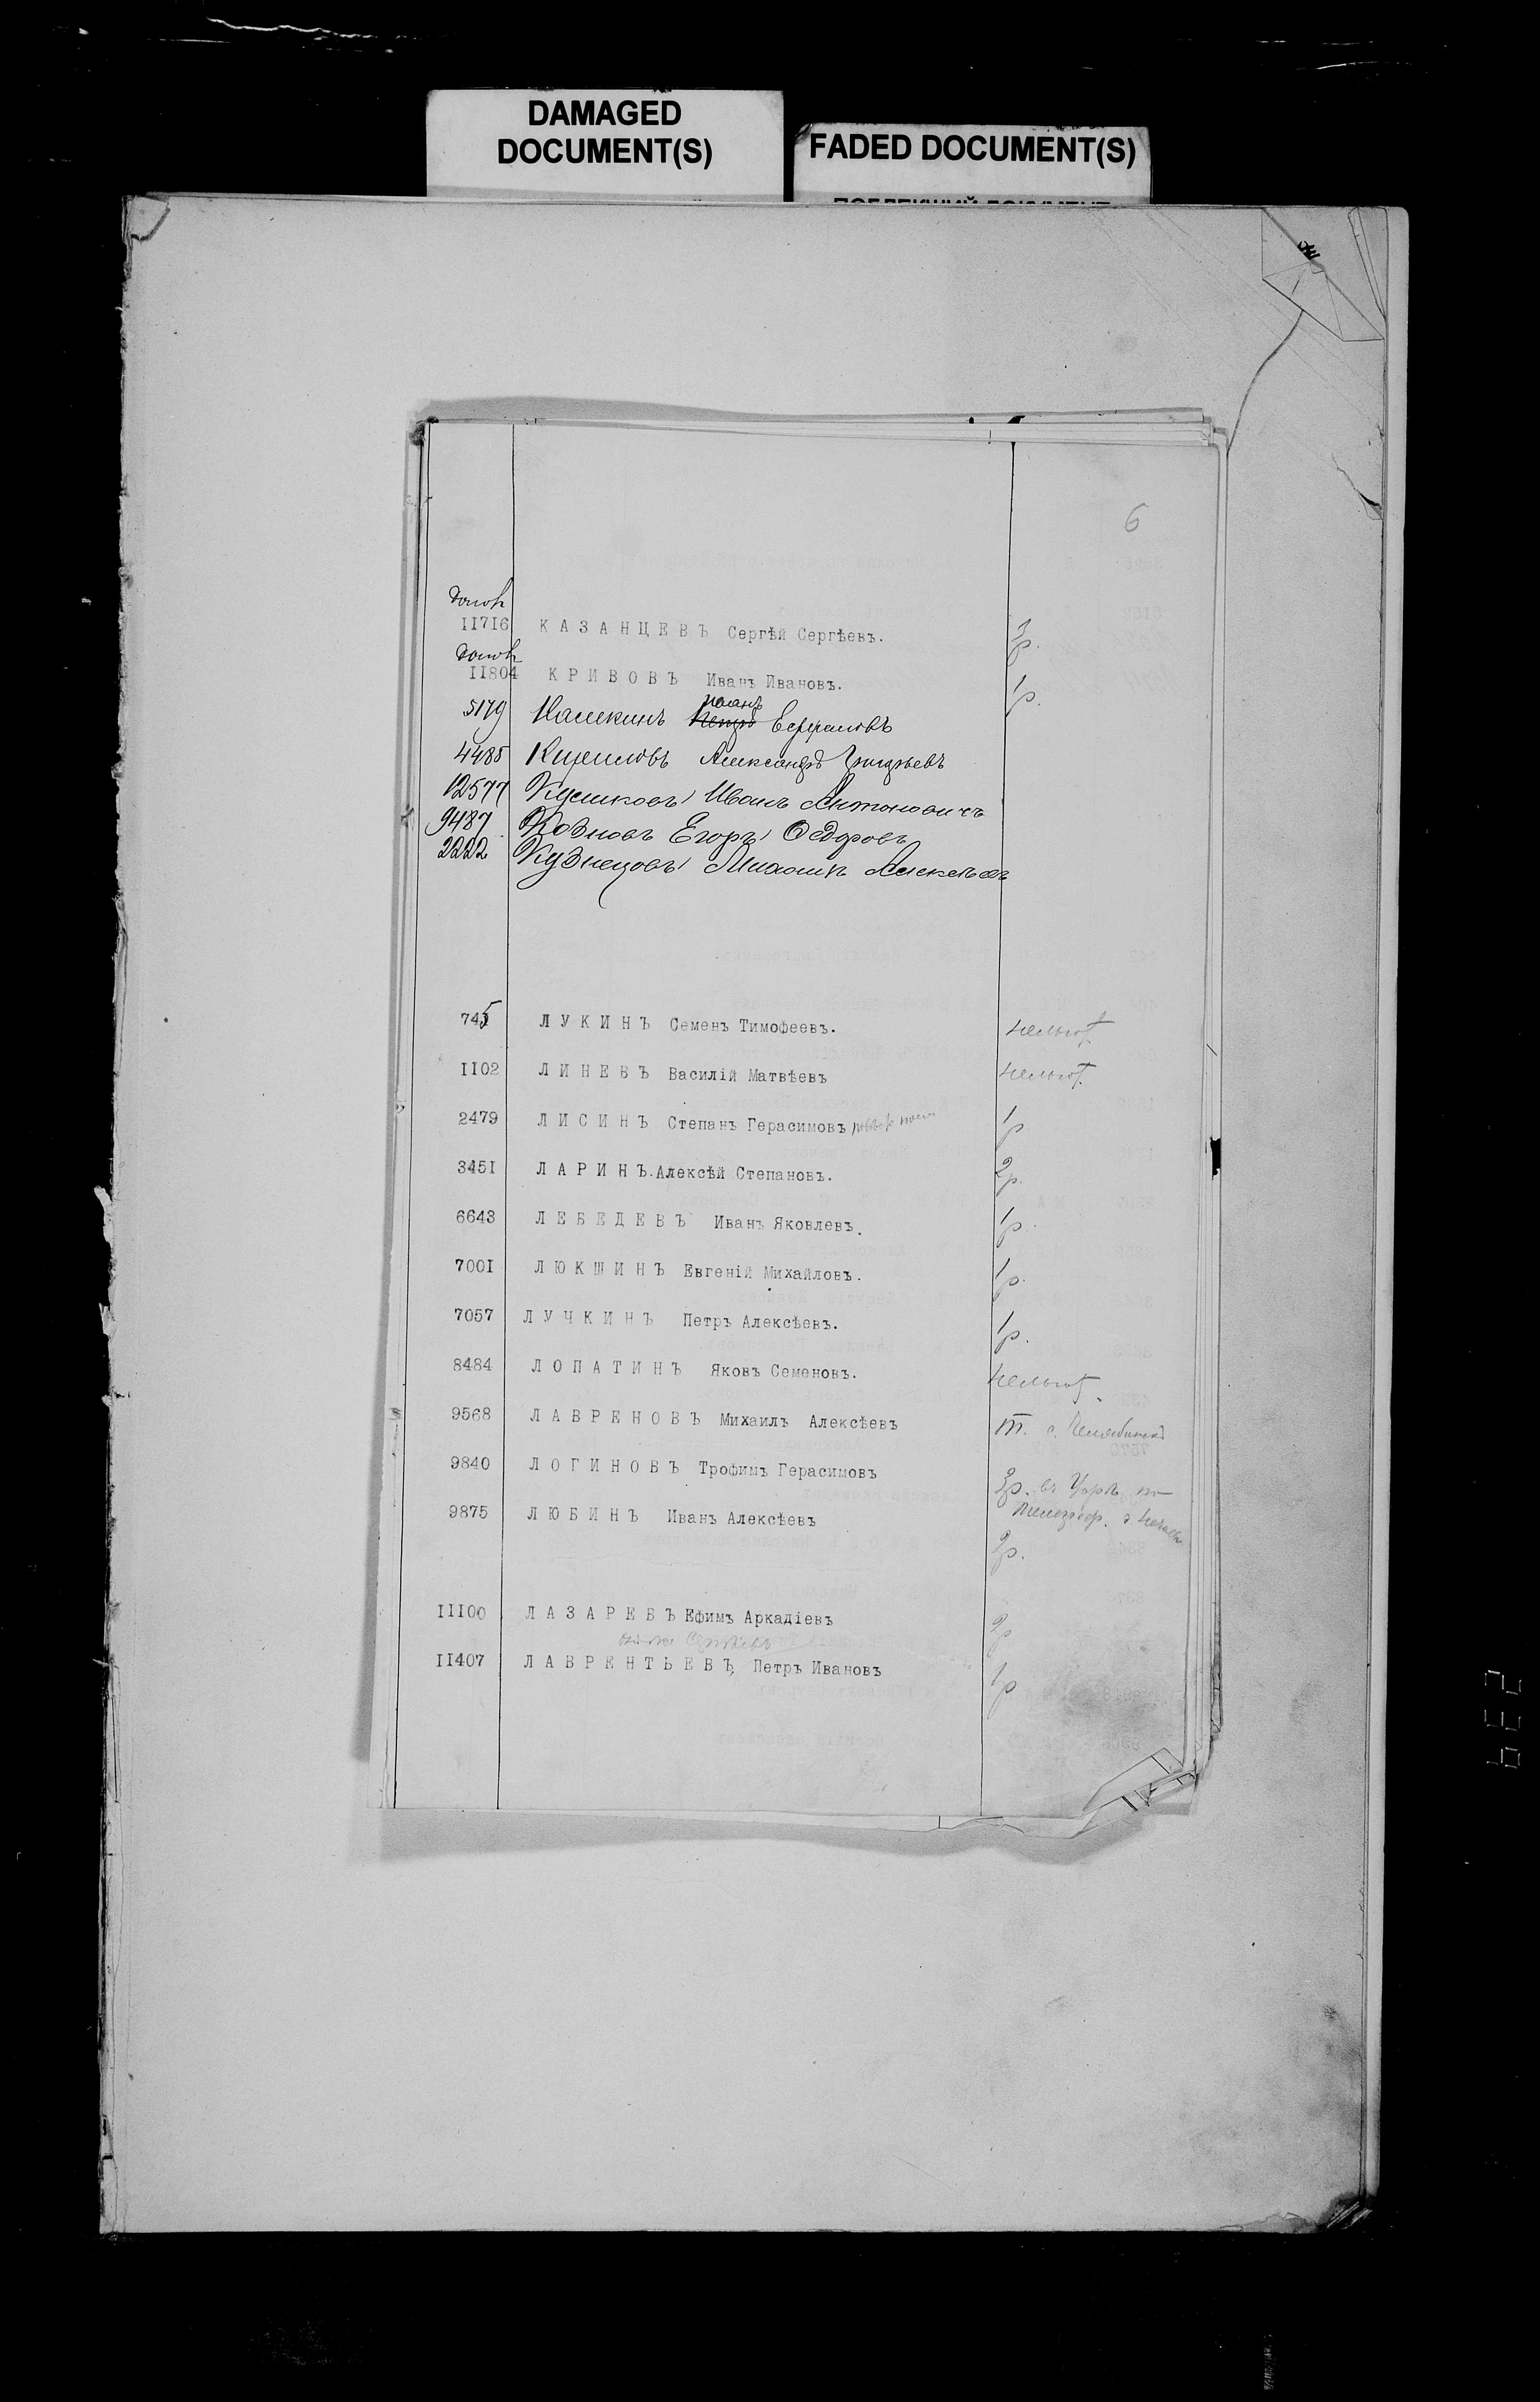 DAMAGED
DOCUMENT(S)
FADED DOCUMENT(S)
6
11716 КАЗАНЦЕВЪ Сергѣй Сергѣевъ. 3р.
11804 КРИВОВЪ Иванъ Ивановъ. 1р.
5179 Калекинъ Ефремовъ
4485 Кириловъ Александръ Григорьевъ
12577 Кушковъ Иванъ Антоновичъ
9487 Козновъ Егоръ Ѳедоровъ
2222 Кузнецовъ Михаилъ Алексѣевъ
745 ЛУКИНЪ Семенъ Тимофеевъ.
1102 ЛИНЕВЪ Василій Матвѣевъ
2479 ЛИСИНЪ Степанъ Герасимовъ 1р.
3451 ЛАРИНЪ.Алексѣй Степановъ. 2р.
6643 ЛЕБЕДЕВЪ Иванъ Яковлевъ. 1р.
7001 ЛЮКШИНЪ Евгеній Михайловъ. 1р.
7057 ЛУЧКИНЪ Петръ Алексѣевъ. 1р.
8484 ЛОПАТИНЪ Яковъ Семеновъ.
9568 ЛАВРЕНОВЪ Михаилъ Алексѣевъ т. г. Челябинскъ
9840 ЛОГИНОВЪ Трофимъ Герасимовъ 3р.
9875 ЛЮБИНЪ Иванъ Алексѣевъ
2р.
11100 ЛАЗАРЕВЪ Ефимъ Аркадіевъ 2р
11407 ЛАВРЕНТЬЕВЪ, Петръ Ивановъ 1р
239